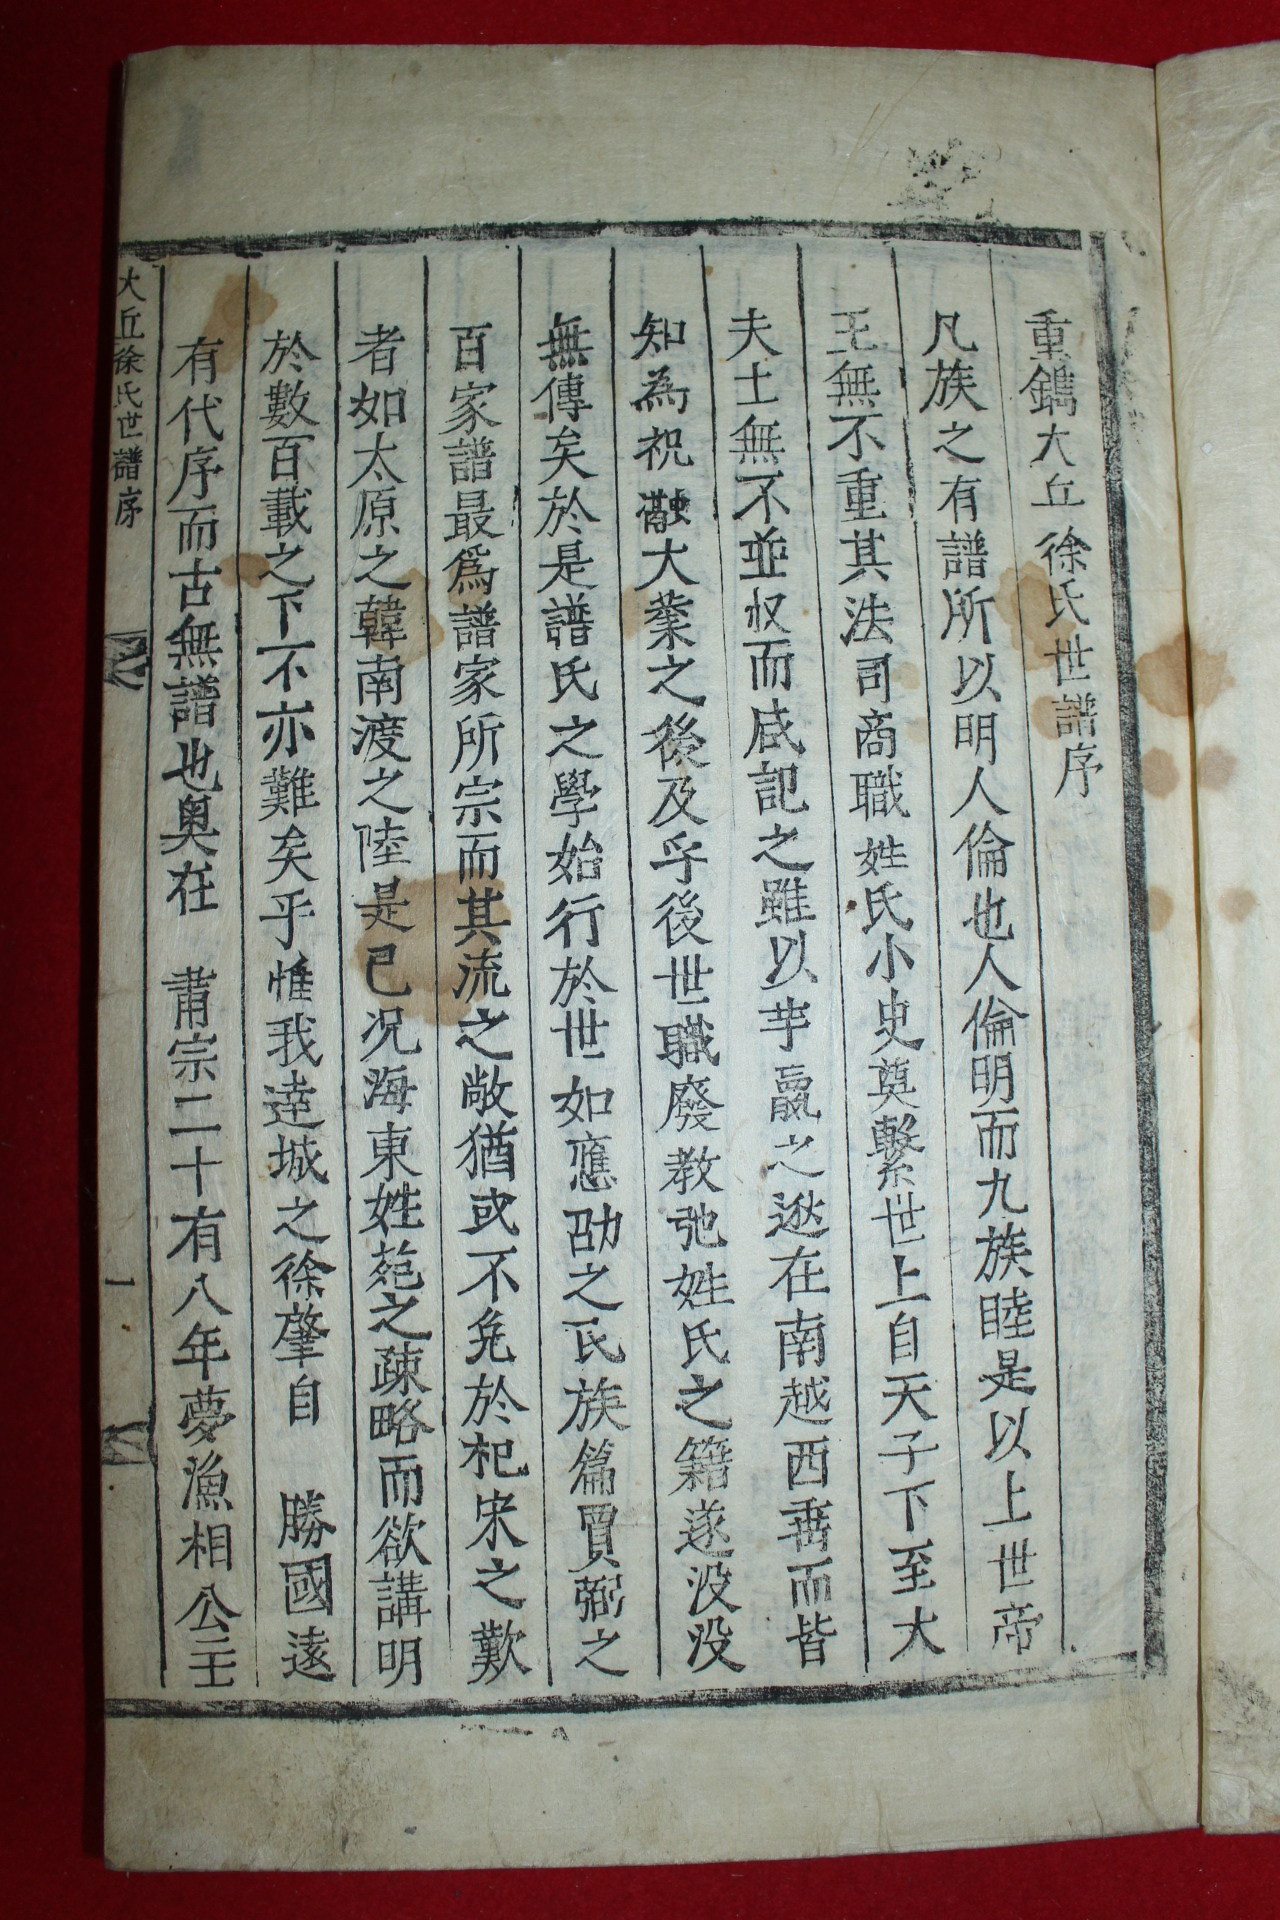 重鐫大丘徐氏世譜序
凡族之有譜所以明人倫也人倫明而九族睦是以上世帝
王無不重其法司商職姓氏小史奠繫世上自天子下至大
夫士無不並収而底記之雖以芉嬴之逖在南越西垂而皆
知為祝融大業之後及乎後世職廢教弛姓氏之籍遂没没
無傳矣於是譜氏之學始行於世如應劭之氏族篇賈弼之
百家譜最爲譜家所宗而其流之敝猶或不免於杞宋之歎
者如太原之韓南渡之陸是已况海東姓苑之疎略而欲講明
於數百載之下不亦難矣乎惟我達城之徐肇自 勝國遠
有代序而古無譜也奥在 肅宗二十有八年夢漁相公主
大丘徐氏世譜序
一